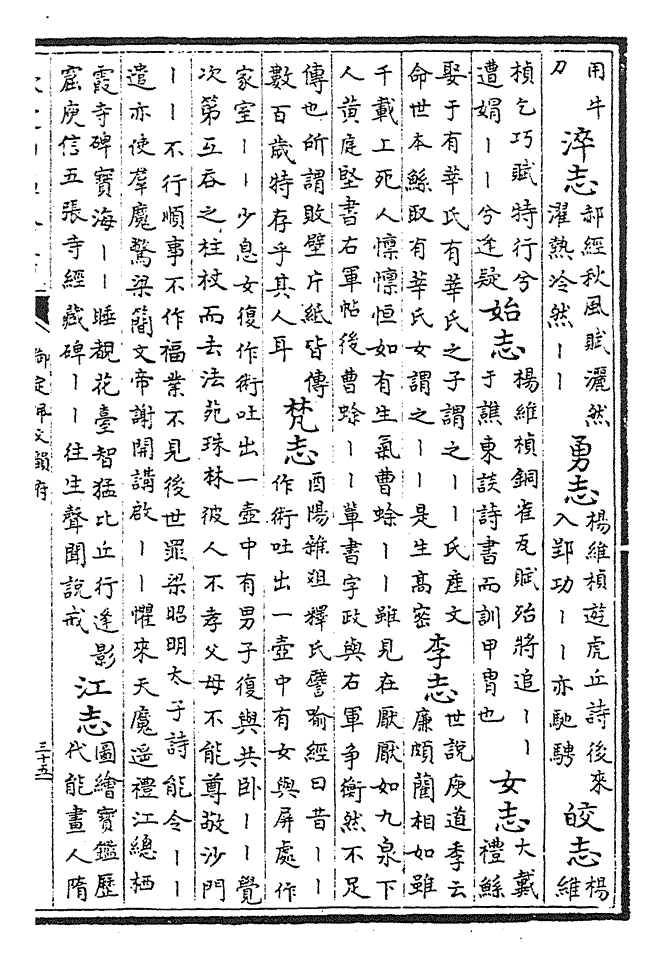 用牛
刀
淬志
郝經秋風賦灑然
濯熱冷然丨丨
勇志
楊維楨遊虎丘詩後來
入郢功丨丨亦馳騁
皎志
楊
維
楨乞巧賦特行兮
遭娟丨丨兮逢疑
始志
楊維楨銅雀瓦賦殆將追丨丨
于譙東談詩書而訓甲冑也
女志
大戴
禮鯀
娶于有莘氏有莘氏之子謂之丨丨氏產文
命世本鯀取有莘氏女謂之丨丨是生高密
李志
世說庾道季云
廉頗藺相如雖
千載上死人懍懍恒如有生氣曹蜍丨丨雖見在厭厭如九泉下
人黄庭堅書右軍帖後曹蜍丨丨輩書字政與右軍爭衡然不足
傳也所謂敗壁片紙皆傳
數百歲特存乎其人耳
梵志
酉陽雜俎釋氏譬喻經曰昔丨丨
作術吐出一壺中有女與屏處作
家室丨丨少息女復作術吐出一壺中有男子復與共卧丨丨覺
次第互吞之柱杖而去法苑珠林彼人不孝父母不能尊敬沙門
丨丨不行順事不作福業不見後世罪梁昭明太子詩能令丨丨
遣亦使羣魔驚梁簡文帝謝開講啟丨丨懼來天魔遥禮江總栖
霞寺碑寶海丨丨睡覩花臺智猛比丘行逢影
窟庾信五張寺經藏碑丨丨往生聲聞說戒
江志
圖繪寶鑑歷
代能畫人隋
御定佩文韻府
三十五